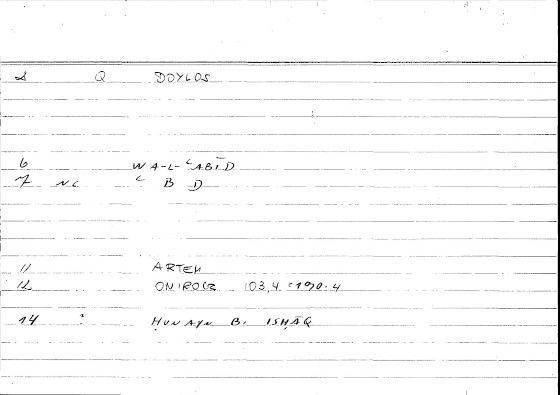 Q DOYLOS
6 WA-L-ʿABĪD
7 NC ʿ B D
11 ARTEM
12 ONIROCR 103,4 190.4
14 ḤUNAYN B. ISḤĀQ